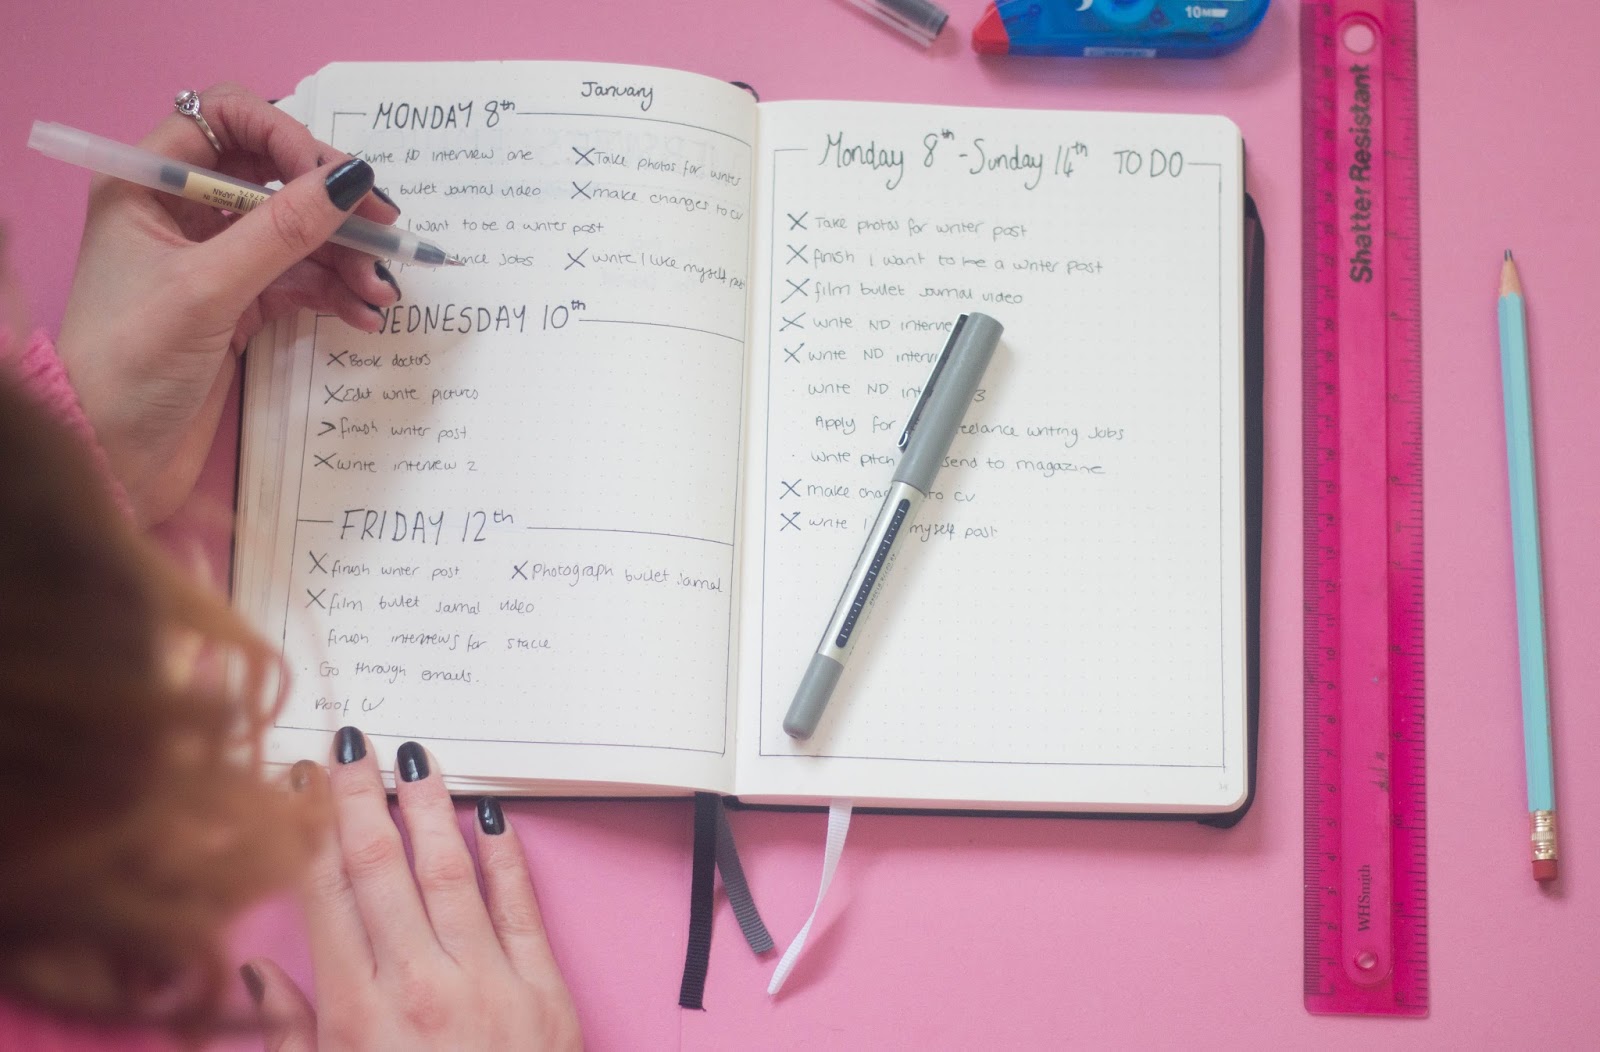 January
MONDAY 8th
write ND interview one
X Take photos for writer
bullet journal video
X make changes to cv
I want to be a writer post
jobs
X write I like myself post
WEDNESDAY 10th
X Book doctors
X Edit write pictures
> finish writer post
X write interview 2
FRIDAY 12th
X finish writer post
X photograph bullet journal
X film bullet journal video
finish interviews for stacie
· Go through emails.
Proof CV
Monday 8th - Sunday 14th TO DO
X Take photos for writer post
X finish I want to be a writer post
X film bullet journal video
X write ND
X write ND
· write ND 3
Apply for writing jobs
· write pitch send to magazine
X make cv
X write myself post
10M
MADE IN
JAPAN
ShatterResistant
WHSmith